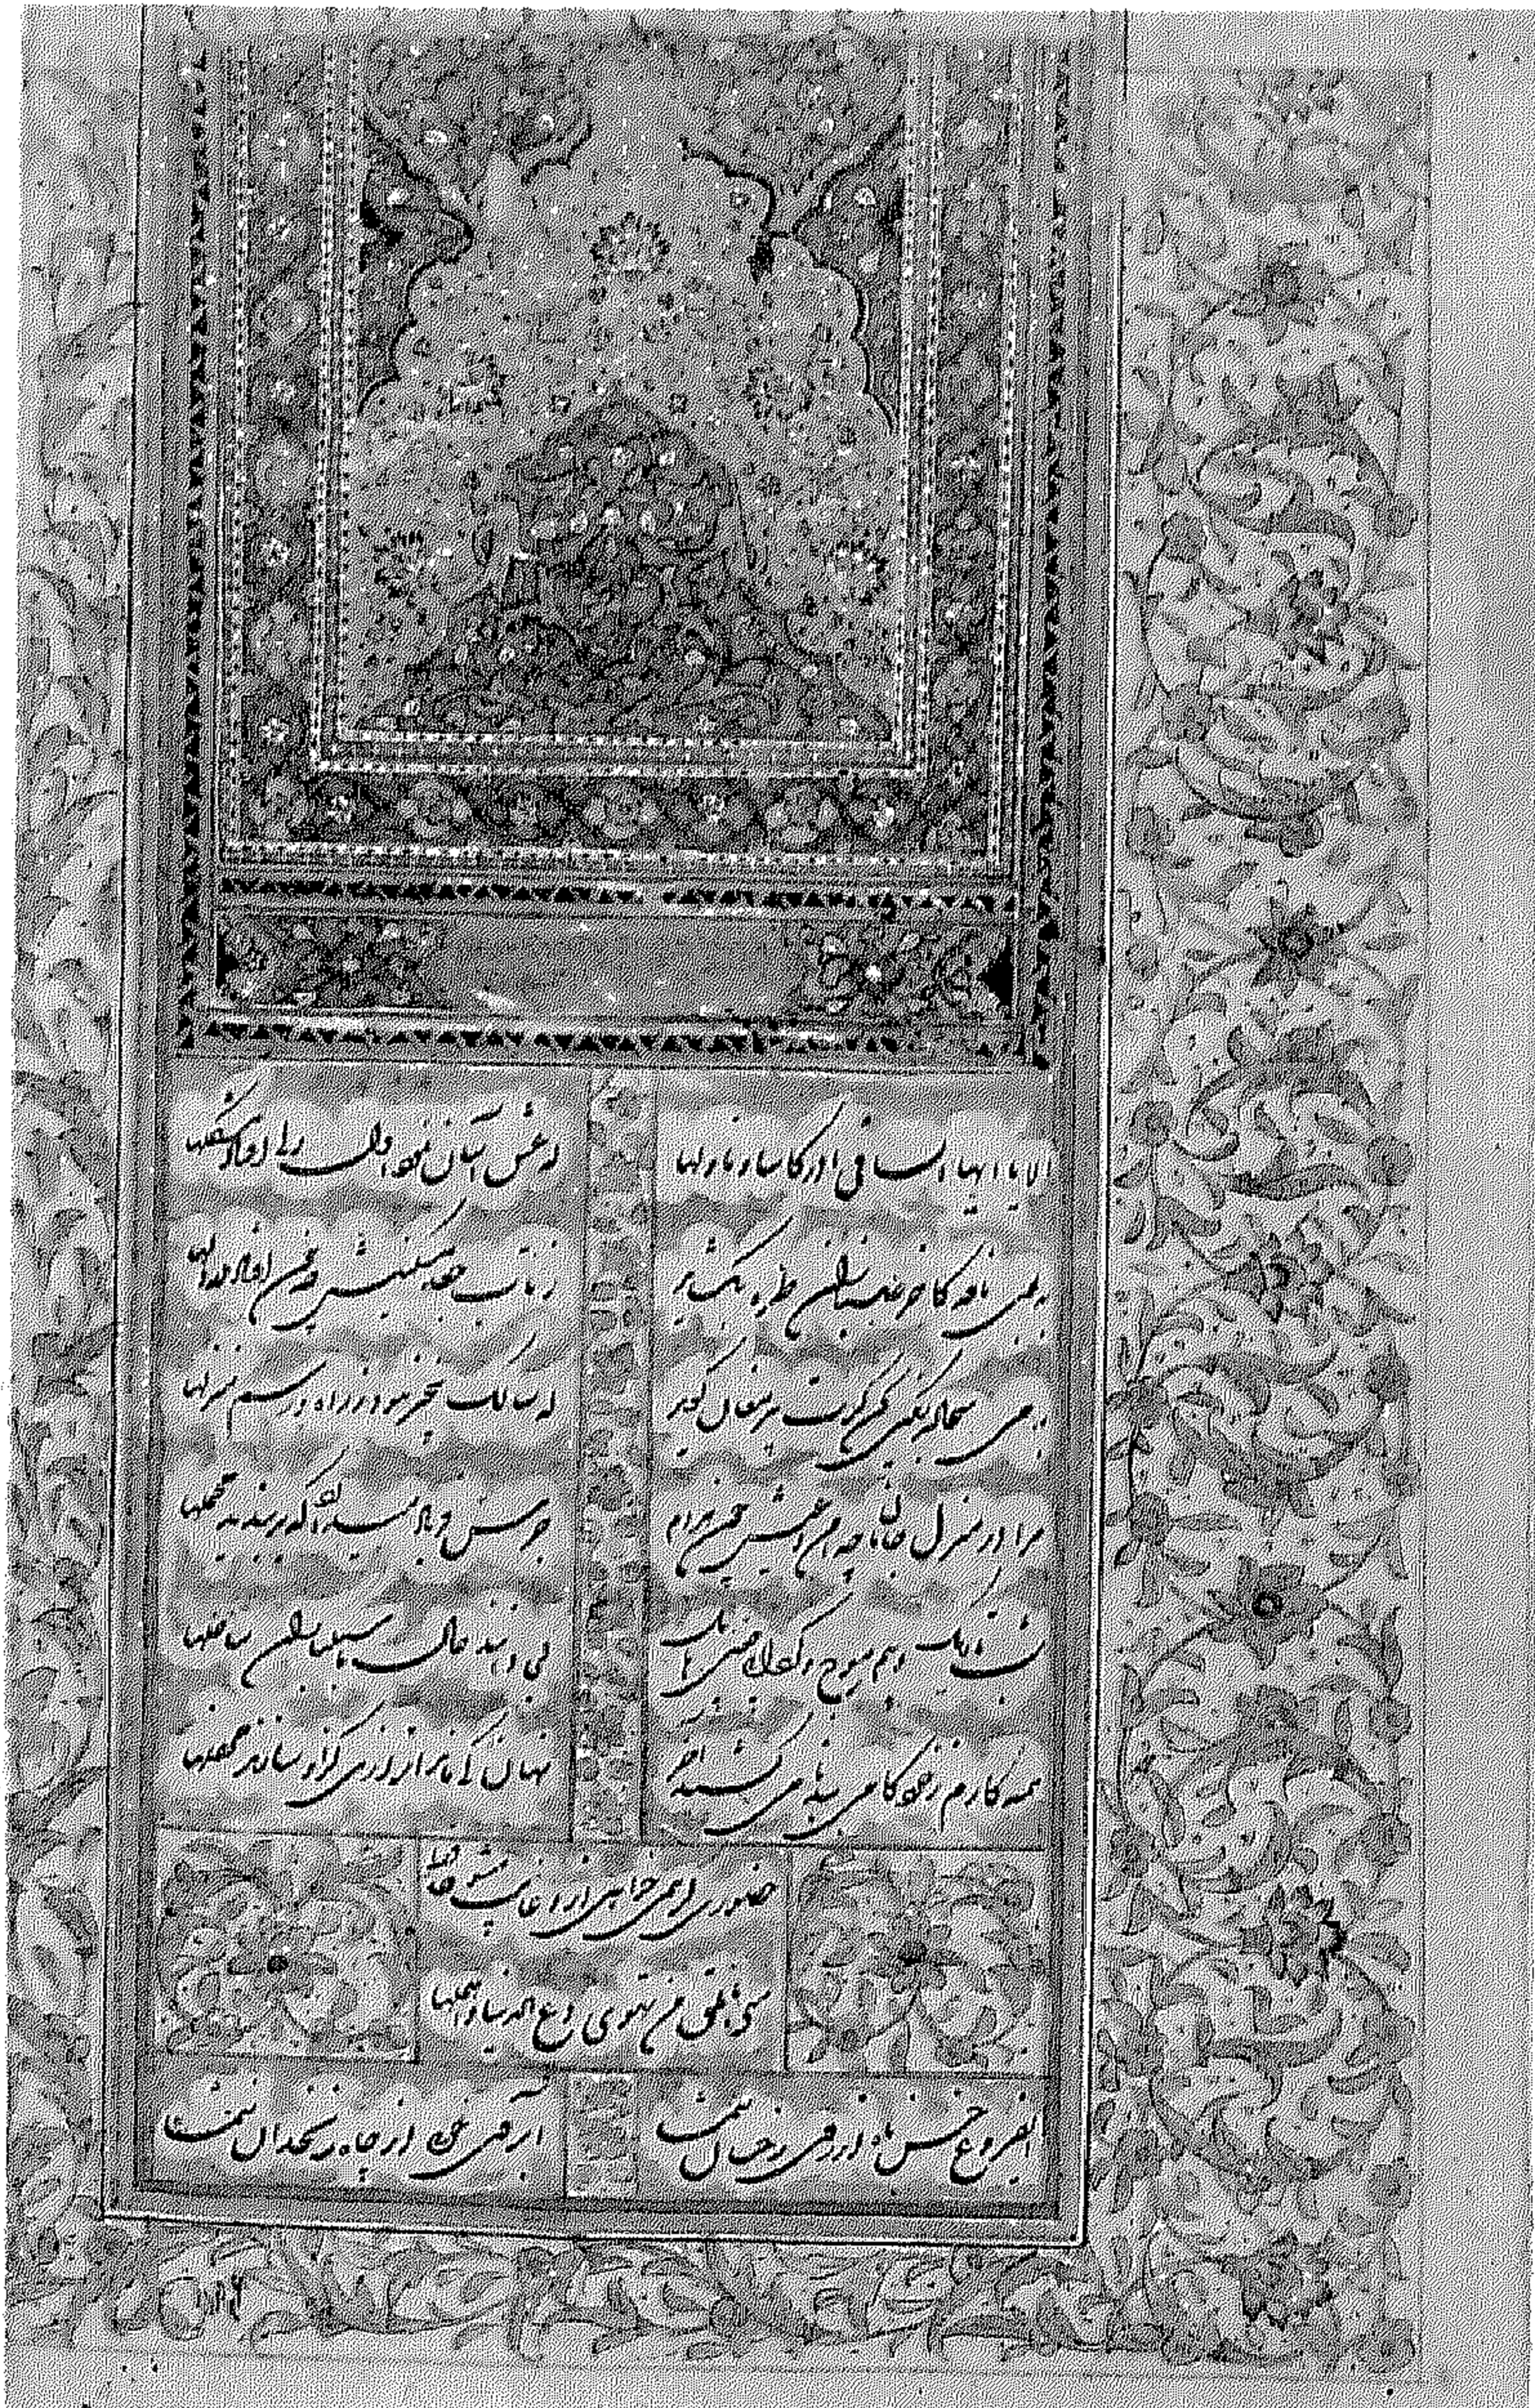 الا یا ایها الساقی ادر کاسا و ناولها که عشق آسان نمود اول ولی افتاد مشکلها
ببوی نافه کاخر صبا زان طره بگشاید ز تاب جعد مشکینش چه خون افتاد در دلها
بمی سجاده رنگین کن گرت پیر مغان گوید که سالک بیخبر نبود ز راه و رسم منزلها
مرا در منزل جانان چه امن و عیش چون هر دم جرس فریاد میدارد که بربندید محملها
شب تاریک و بیم موج و گردابی چنین هایل کجا دانند حال ما سبکباران ساحلها
همه کارم ز خودکامی ببدنامی کشید آخر نهان کی ماند آن رازی کزو سازند محفلها
حضوری گر همی خواهی ازو غایب مشو حافظ
متی ما تلق من تهوی دع الدنیا و اهملها
ای فروغ حسن ماه از روی رخشان شما آبروی خوبی از چاه زنخدان شما